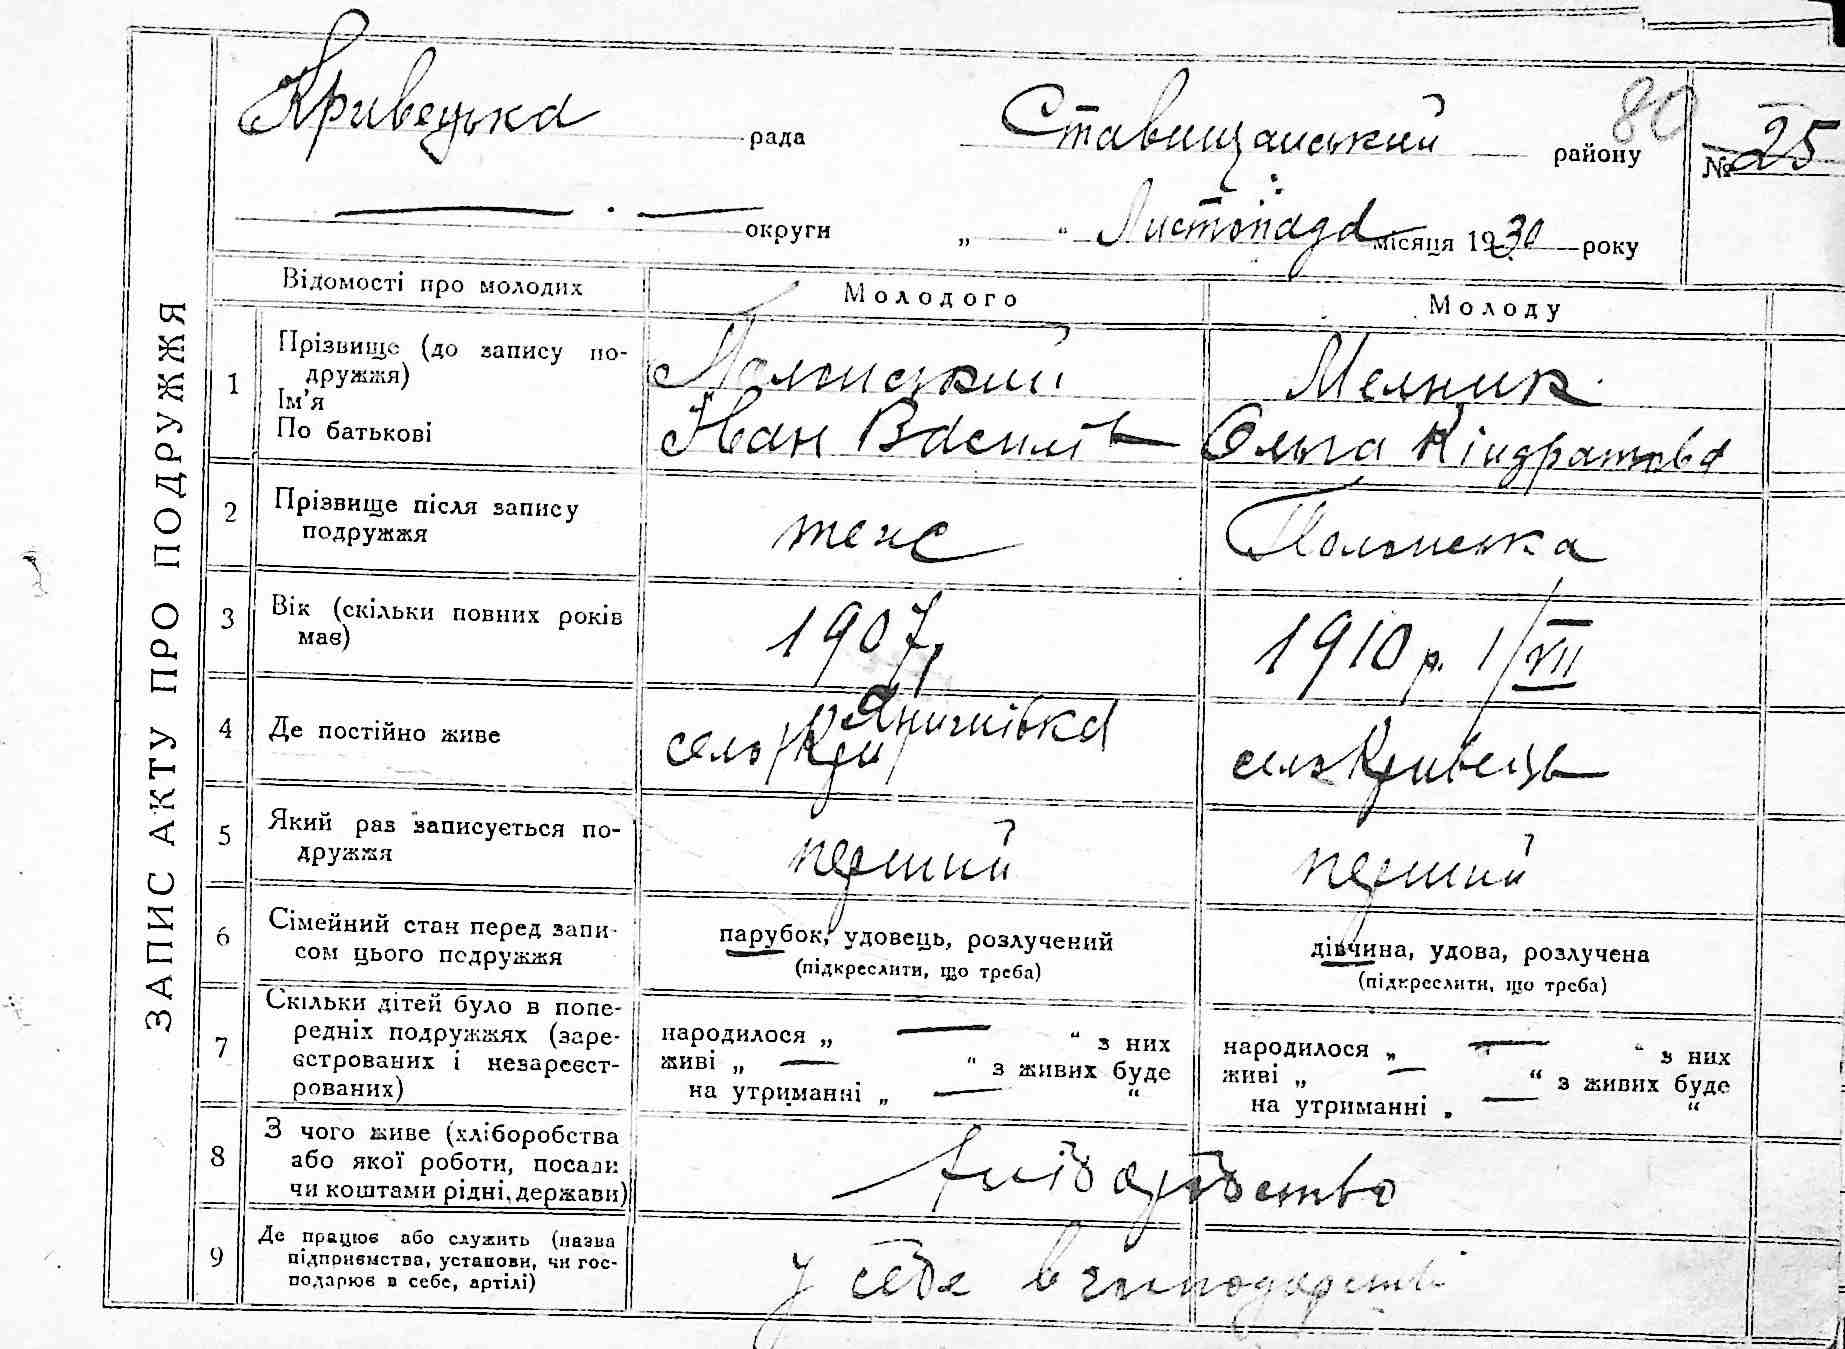 ЗАПИС АКТУ ПРО ПОДРУЖЖЯ
80
Кривецька рада Ставищанський району № 25
округи „ “ Листопада місяця 1930 року
Відомості про молодих Молодого Молоду
1 Прізвище (до запису подружжя) Мелник
Ім'я
По батькові Іван Васильв Ольга Кіндратова
2 Прізвище після запису подружжя теже Польиська
3 Вік (скільки повних років має) 1907 1910 р. 1/VII
4 Де постійно живе село село Кривець
5 Який раз записується подружжя перший перший
6 Сімейний стан перед записом цього подружжя парубок, удовець, розлучений дівчина, удова, розлучена
(підкреслити, що треба) (підкреслити, що треба)
7 Скільки дітей було в попередніх подружжях (зареєстрованих і незареєстрованих)
народилося „ — “ з них народилося „ — “ з них
живі „ — “ з живих буде живі „ — “ з живих буде
на утриманні „ — “ на утриманні „ — “
8 З чого живе (хліборобства або якої роботи, посади чи коштами рідні, держави) хліборобство
9 Де працює або служить (назва підприємства, установи, чи господарює в себе, артілі) у себе в господарстві